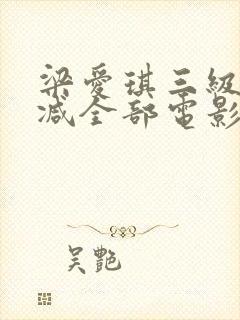 梁愛琪三級
减全部電影
吴艷